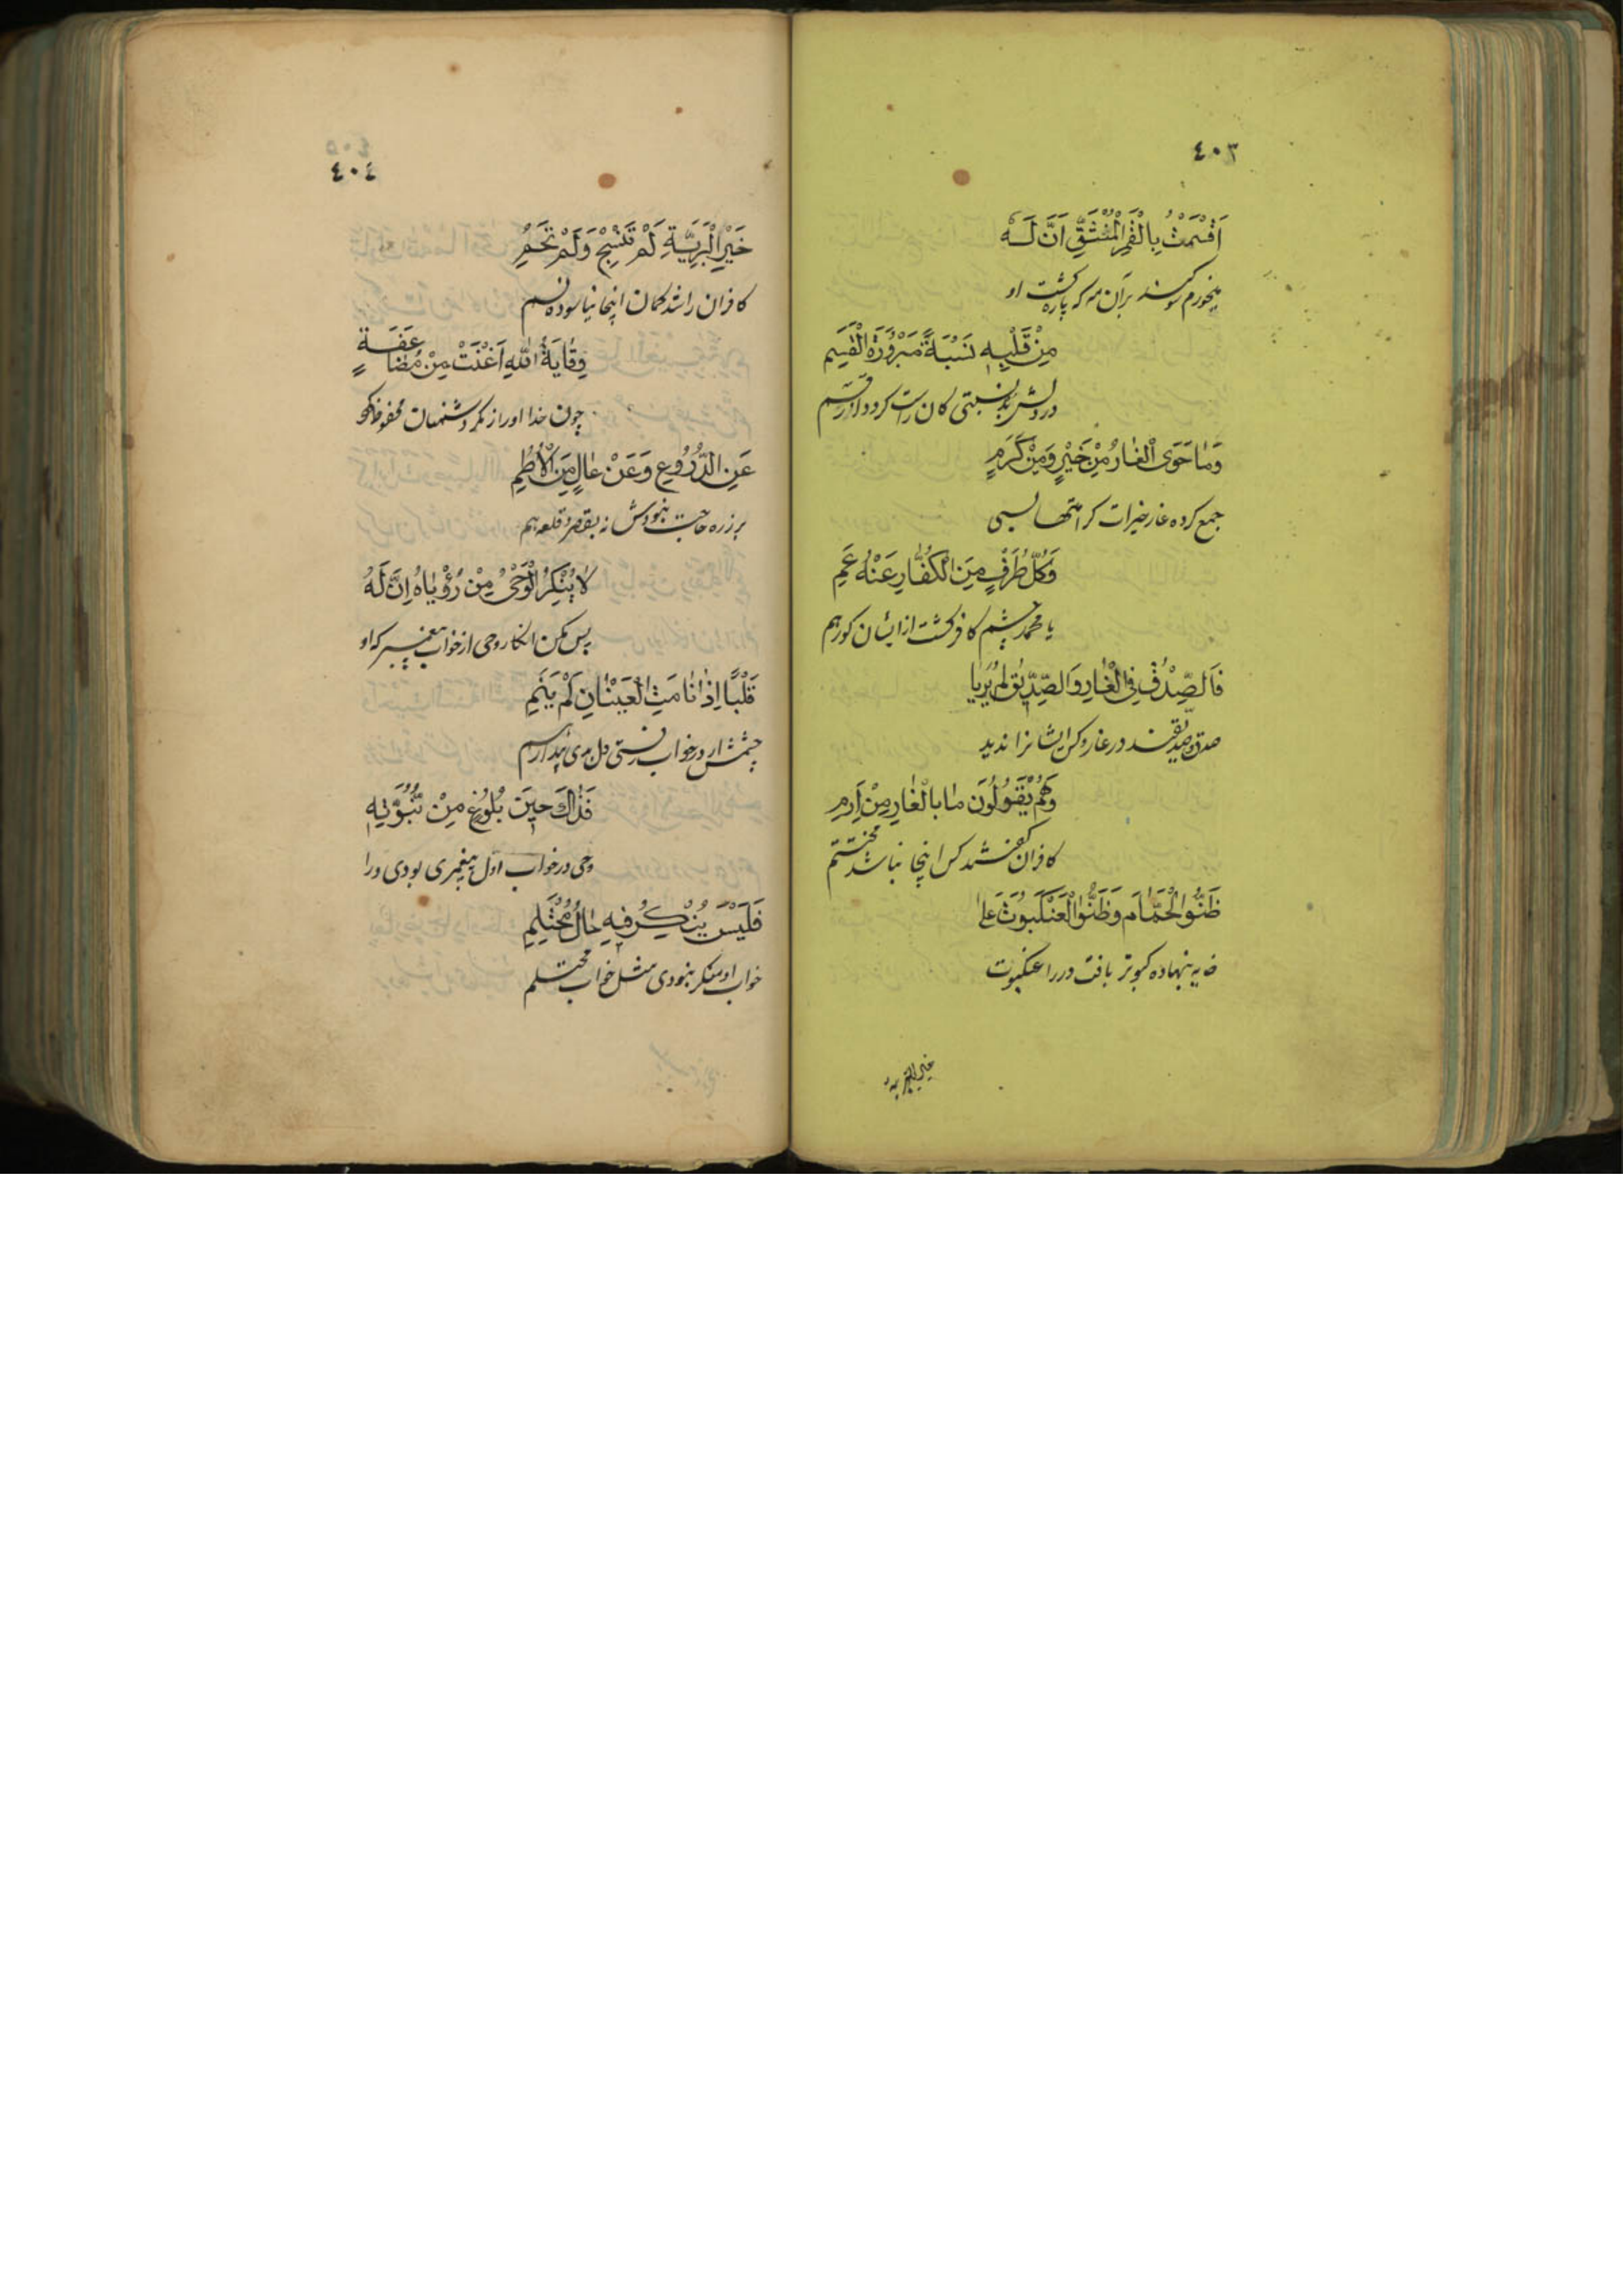 ٤٠٣
اَقْسَمْتُ بِالْقَمَرِ الْمُنْشَقِّ اَنَّ لَهُ
میخورم سوکند بر آن مه که پاره کشت او
مِنْ قَلْبِهِ نِسْبَةً مَبْرُوْرَةَ الْقَسَمِ
در دلش بد نسبتی کان راست کردد از قسم
وَمَا حَوَى الْغَارُ مِنْ خَيْرٍ وَمِنْ كَرَمٍ
جمع کرده غار خیرات کرامتها بسی
وَكُلُّ طَرْفٍ مِنَ الْكُفَّارِ عَنْهُ عَمِ
یا محمد چشم کافر کشت از ایشان کور هم
فَالصِّدْقُ فِي الْغَارِ وَالصِّدِّيْقُ لَمْ يُرَيَا
صدق و صدیقند در غار و کس ایشانرا ندید
وَهُمْ يَقُوْلُوْنَ مَا بِالْغَارِ مِنْ اَرِمِ
کافران گفتند کس اینجا نباشد مختتم
ظَنُّوا الْحَمَامَ وَظَنُّوا الْعَنْكَبُوْتَ عَلَى
خایه بنهاده کبوتر بافت در را عنکبوت
خير البريه
٤٠٤
خَيْرِ الْبَرِيَّةِ لَمْ تَنْسِجْ وَلَمْ تَحُمِ
کافران را شد کمان اینجا نیاسوده نسم
وِقَايَةُ اللهِ اَغْنَتْ مِنْ مُضَاعَفَةٍ
چون خدا او را ز مکر دشمنان محفوظ کرد
عَنِ الدُّرُوْعِ وَعَنْ عَالٍ مِنَ الْاُطُمِ
بر زره حاجت نبودش نه بقصر و قلعه هم
لَا يُنْكِرُ الْوَحْيُ مِنْ رُؤْيَاهُ اِنَّ لَهُ
پس مکن انکار وحی از خواب پیغمبر که او
قَلْبًا اِذَا نَامَتِ الْعَيْنَانِ لَمْ يَنَمِ
چشمش ار در خواب رفتی دل بدی بیدار هم
فَذَاكَ حِيْنَ بُلُوْغٍ مِنْ نُبُوَّتِهِ
وحی در خواب اول پیغمبری بودی ورا
فَلَيْسَ يُنْكَرُ فِيْهِ حَالُ مُحْتَلِمِ
خواب او منکر نبودی مثل خواب محتلم